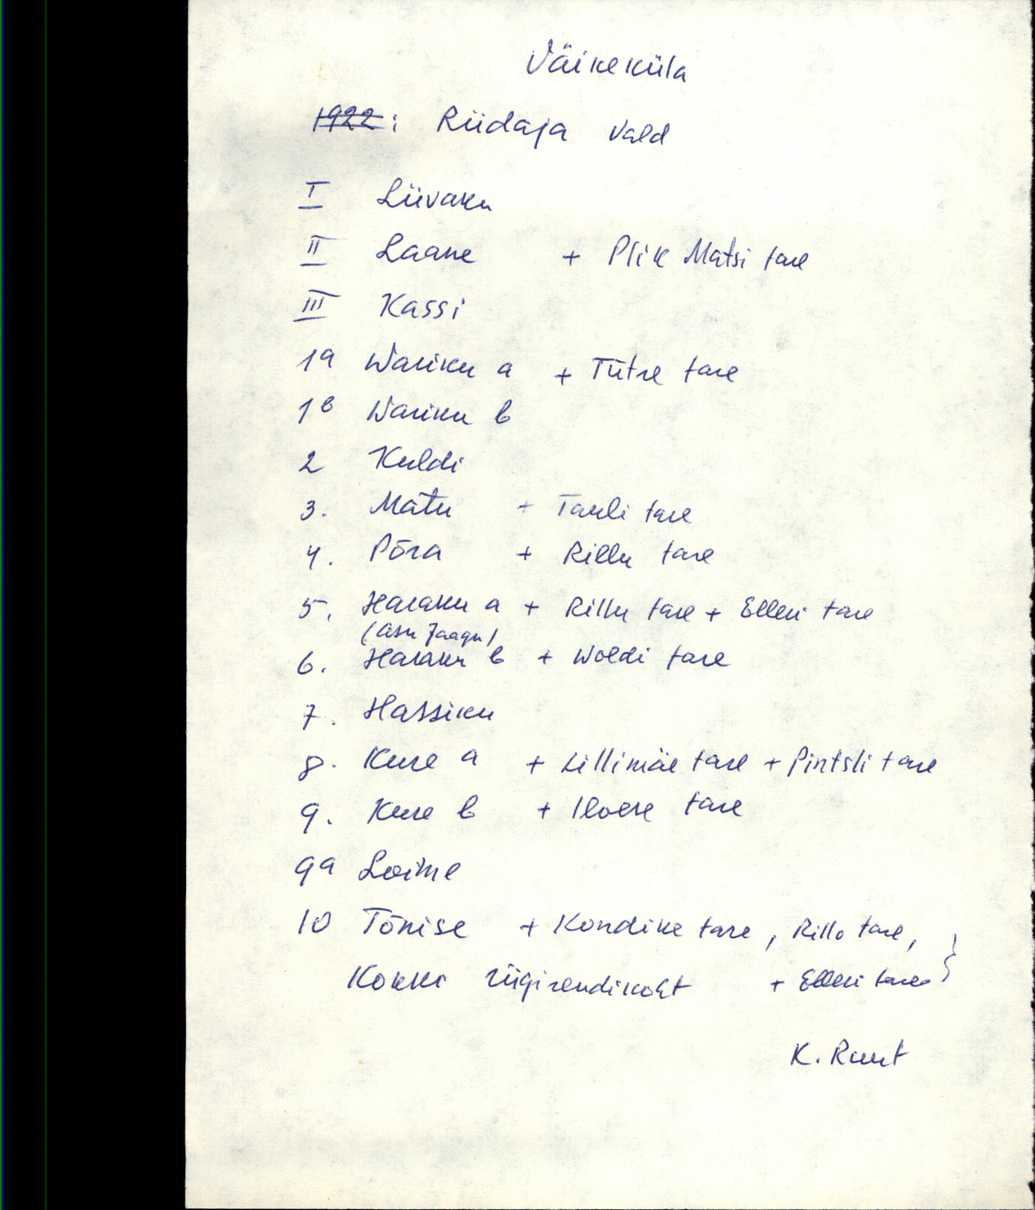 Väikeküla
1922: Riidaja vald
I Liivaku
II Laane + Plik Matsi tare
III Kassi
1a Wariku a + Tütre tare
1b Wariku b
2 Kuldi
3. Matu + Tauli tare
4. Põra + Rillu tare
5. Haraku a + Rillu tare + Elleri tare
(Asu Jaagu)
6. Haraku b + Woldi tare
7. Hassiku
8. Kure a + Lillimäe tare + Pintsli tare
9. Kure b + Iloere tare
9a Loime
10 Tõnise + Kondike tare, Rillo tare,
Kokki riigirendikoht + Elleri tare
K. Ruut